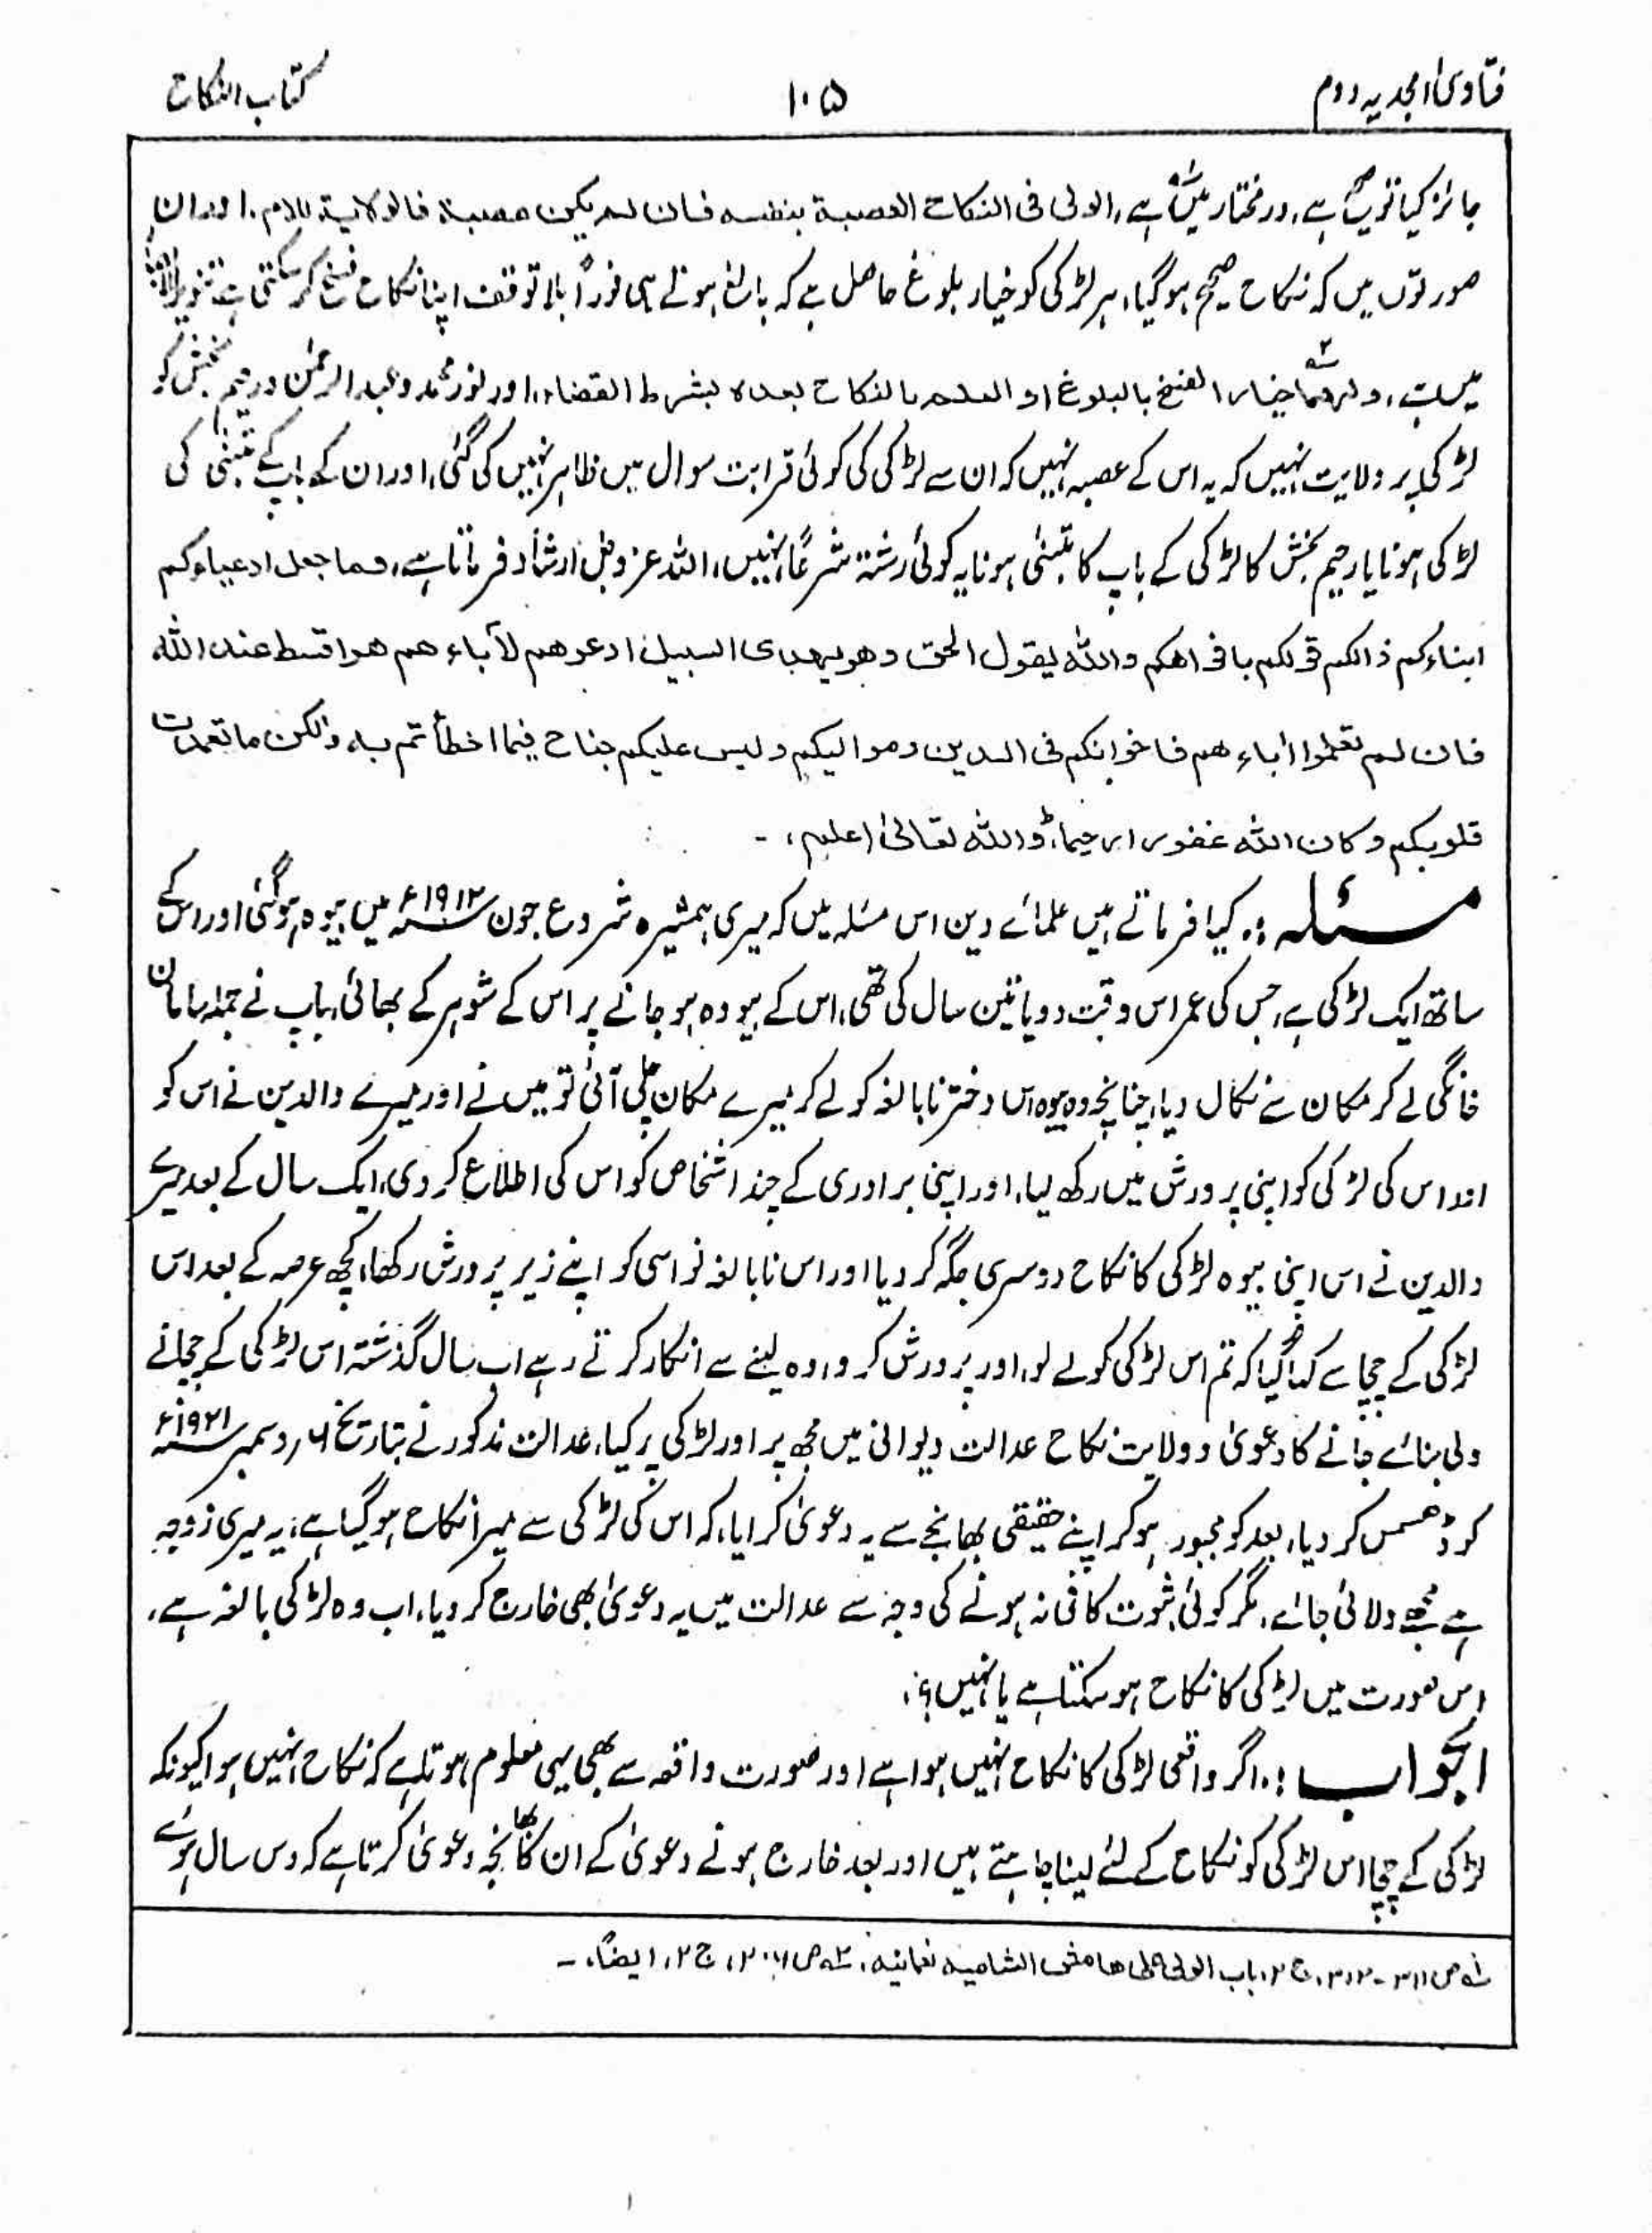 فتاویٰ امجدیہ دوم
۱۰۵
کتاب النکاح
جائز کیا تو صحیح ہے، درمختار میں ہے، الولی فی النکاح العصبۃ بنفسہ فان لم یکن عصبۃ فالولایۃ للام، اور ان
صورتوں میں کہ نکاح صحیح ہوگیا، ہر لڑکی کو خیار بلوغ حاصل ہے کہ بالغ ہوتے ہی فوراً بلا توقف اپنا نکاح فسخ کرسکتی ہے تنویر الابصار
میں ہے، ولہما خیار الفسخ بالبلوغ او العلم بالنکاح بعدہ بشرط القضاء، اور نور محمد و عبدالرحمٰن و رحیم بخش کو
لڑکی پر ولایت نہیں کہ یہ اس کے عصبہ نہیں کہ ان سے لڑکی کی کوئی قرابت سوال میں ظاہر نہیں کی گئی، اور ان کے باپ کے متبنّٰی کی
لڑکی ہونا یا رحیم بخش کا لڑکی کے باپ کا متبنّٰی ہونا یہ کوئی رشتہ شرعاً نہیں، اللہ عزوجل ارشاد فرماتا ہے، وما جعل ادعیاءکم
ابناءکم ذالکم قولکم بافواھکم واللہ یقول الحق وھو یھدی السبیل ادعوھم لآباءھم ھو اقسط عند اللہ
فان لم تعلموا اٰباءھم فاخوانکم فی الدین وموالیکم ولیس علیکم جناح فیما اخطأتم بہ ولکن ما تعمدت
قلوبکم وکان اللہ غفورا رحیما، واللہ تعالیٰ اعلم، ۔
مسئلہ :۔ کیا فرماتے ہیں علمائے دین اس مسئلہ میں کہ میری ہمشیرہ شروع جون ۱۹۱۲ء میں بیوہ ہوگئی اور اس کے
ساتھ ایک لڑکی ہے، جس کی عمر اس وقت دو یا تین سال کی تھی، اس کے بیوہ ہو جانے پر اس کے شوہر کے بھائی، باپ نے جملہ سامان
خانگی لے کر مکان سے نکال دیا، چنانچہ وہ بیوہ اس دختر نابالغہ کو لے کر میرے مکان چلی آئی تو میں نے اور میرے والدین نے اس کو
اور اس کی لڑکی کو اپنی پرورش میں رکھ لیا، اور اپنی برادری کے چند اشخاص کو اس کی اطلاع کردی، ایک سال کے بعد میرے
والدین نے اس اپنی بیوہ لڑکی کا نکاح دوسری جگہ کردیا اور اس نابالغہ نواسی کو اپنے زیر پرورش رکھا، کچھ عرصہ کے بعد اس
لڑکی کے چچا سے کہا گیا کہ تم اس لڑکی کو لے لو، اور پرورش کرو، وہ لینے سے انکار کرتے رہے اب سال گذشتہ اس لڑکی کے چچا نے
ولی بنائے جانے کا دعویٰ و ولایت نکاح عدالت دیوانی میں مجھ پر اور لڑکی پر کیا، عدالت مذکور نے بتاریخ ۶؍ دسمبر ۱۹۲۱ء
کو ڈھسمس کردیا، بعد کو مجبور ہو کر اپنے حقیقی بھانجے سے یہ دعویٰ کرایا، کہ اس کی لڑکی سے میرا نکاح ہوگیا ہے، یہ میری زوجہ
ہے مجھے دلائی جائے، مگر کوئی ثبوت کافی نہ ہونے کی وجہ سے عدالت میں یہ دعویٰ بھی خارج کردیا، اب وہ لڑکی بالغہ ہے،
اس صورت میں لڑکی کا نکاح ہوسکتا ہے یا نہیں؟،
الجواب :۔ اگر واقعی لڑکی کا نکاح نہیں ہوا ہے اور صورت واقعہ سے بھی یہی معلوم ہوتا ہے کہ نکاح نہیں ہوا کیونکہ
لڑکی کے چچا اس لڑکی کو نکاح کے لئے لینا چاہتے ہیں اور بعد خارج ہونے دعویٰ کے ان کا بھانجہ دعویٰ کرتا ہے کہ دس سال ہوئے
۱؎ ص ۳۱۱-۳۱۲، ج ۲، باب الولی علی ھامش الشامیہ نعمانیہ، ۲؎ ص ۳۰۶، ج ۲، ایضاً، ۔